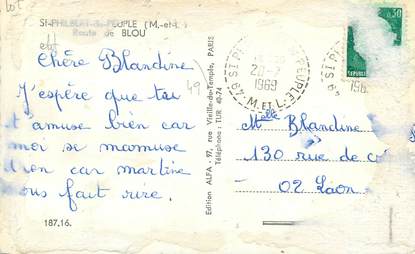 ST-PHILBERT-du-PEUPLE (M.-et-L.)
Route de BLOU
Chère Blandine
J'espère que toi
t'amuse bien car
moi je m'amuse
bien car martine
nous fait rire.
187.16.
49
Edition ALFA - 97, rue Vieille-du-Temple, PARIS
Téléphone : TUR 40-74
49 ST PH PEUPLE
1969
M.ET L.
0,30
49 ST P
196
Melle Blandine
130 rue de
02 Laon